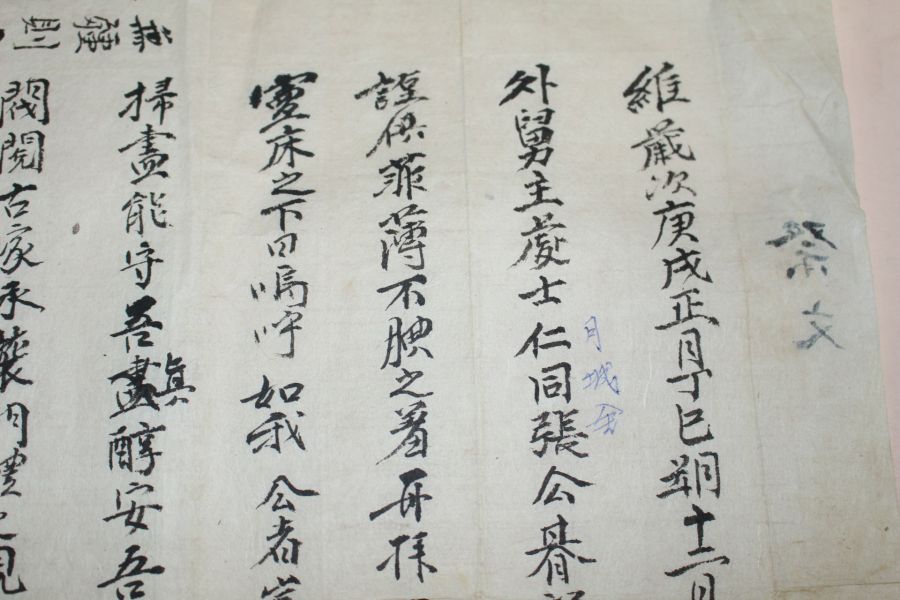 祭文
維歲次庚戌正月丁巳朔十二日
外舅主處士仁同張公朞
月城金
謹供菲薄不腆之羞再拜
靈床之下曰嗚呼如我公者
掃盡能守吾眞醇安吾
閥閱古家承襲
則